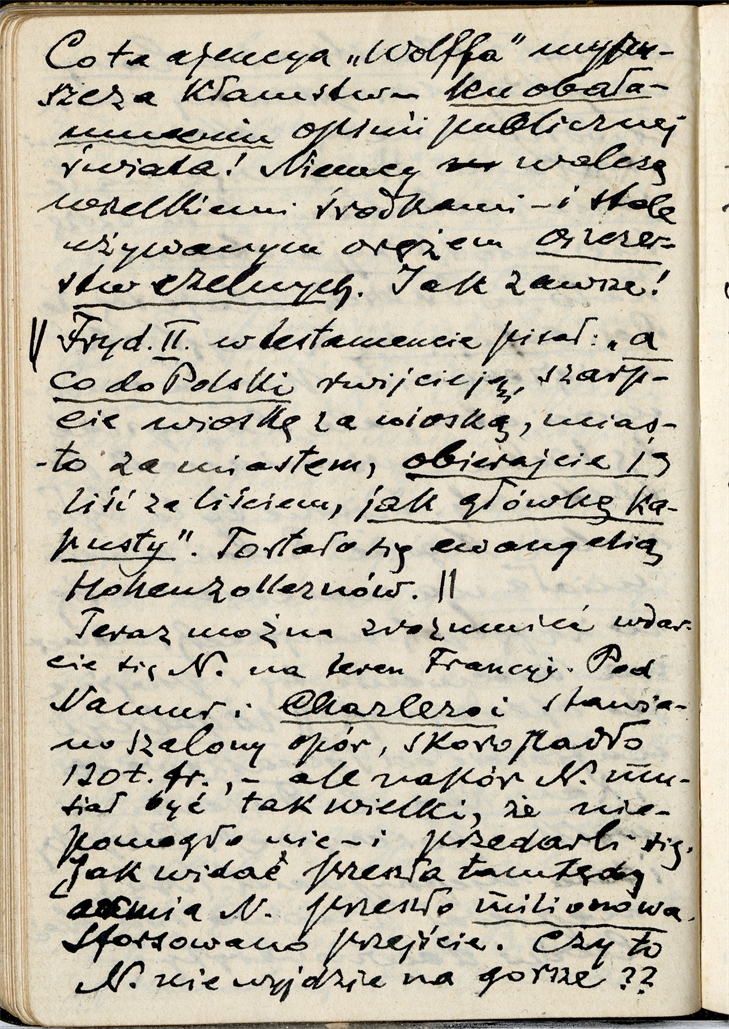 Co ta ajencya „Wolffa" wypu-
szcza kłamstw – ku obała-
muceniu opinii publicznej
świata! Niemcy walczą
wszelkiemi środkami – i stale
używanym orężem oszczer-
stw czelnych. Jak zawsze!
|| Fryd. II. w testamencie pisał: „a
co do Polski zwijcie ją, szarp-
cie wioskę za wioską, mias-
-to za miastem, obierajcie ją
liść za liściem, jak główkę ka-
pusty". To stało się ewangelią
Hohenzollernów. ||
Teraz można zrozumieć wdar-
cie się N. na teren Francyj. Pod
Namur i Charleroi stawia-
no szalony opór, skoro padło
120 t. fr., – ale napór N. mu-
siał być tak wielki, że nie-
pomogło nic – i przedarli się.
[Jak widać przeszła tamtędy
armia N. przeszło milionowa.
Sforsowano przejście. Czy to
N. nie wyjdzie na gorsze ??